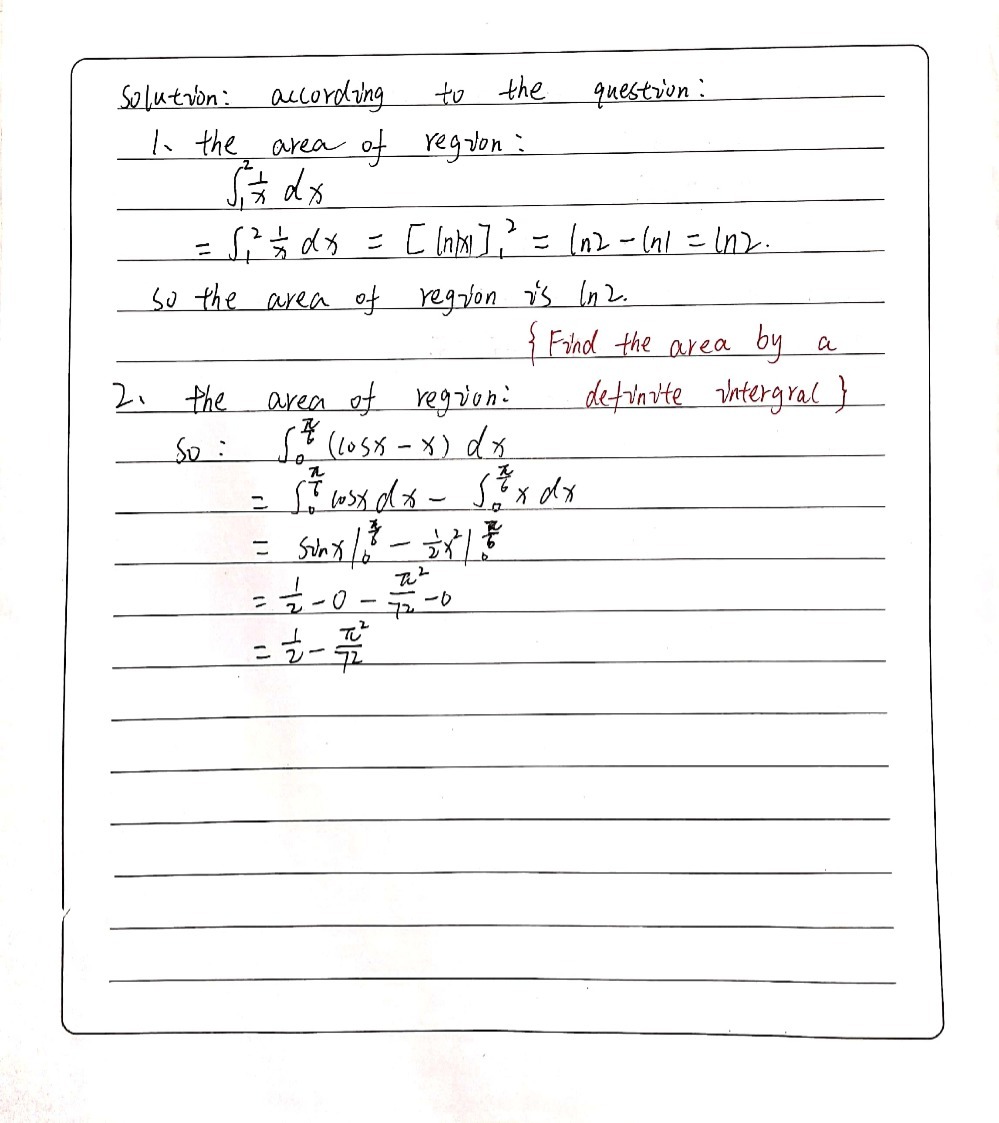 Solution: according to the question:
1、the area of region:
∫₁² 1/x dx
= ∫₁² 1/x dx = [ln|x|]₁² = ln2 - ln1 = ln2.
so the area of region is ln2.
{Find the area by a
2、the area of region: definite intergral}
so: ∫₀^(π/6) (cosx - x) dx
= ∫₀^(π/6) cosx dx - ∫₀^(π/6) x dx
= sinx|₀^(π/6) - 1/2x²|₀^(π/6)
= 1/2 - 0 - π²/72 - 0
= 1/2 - π²/72